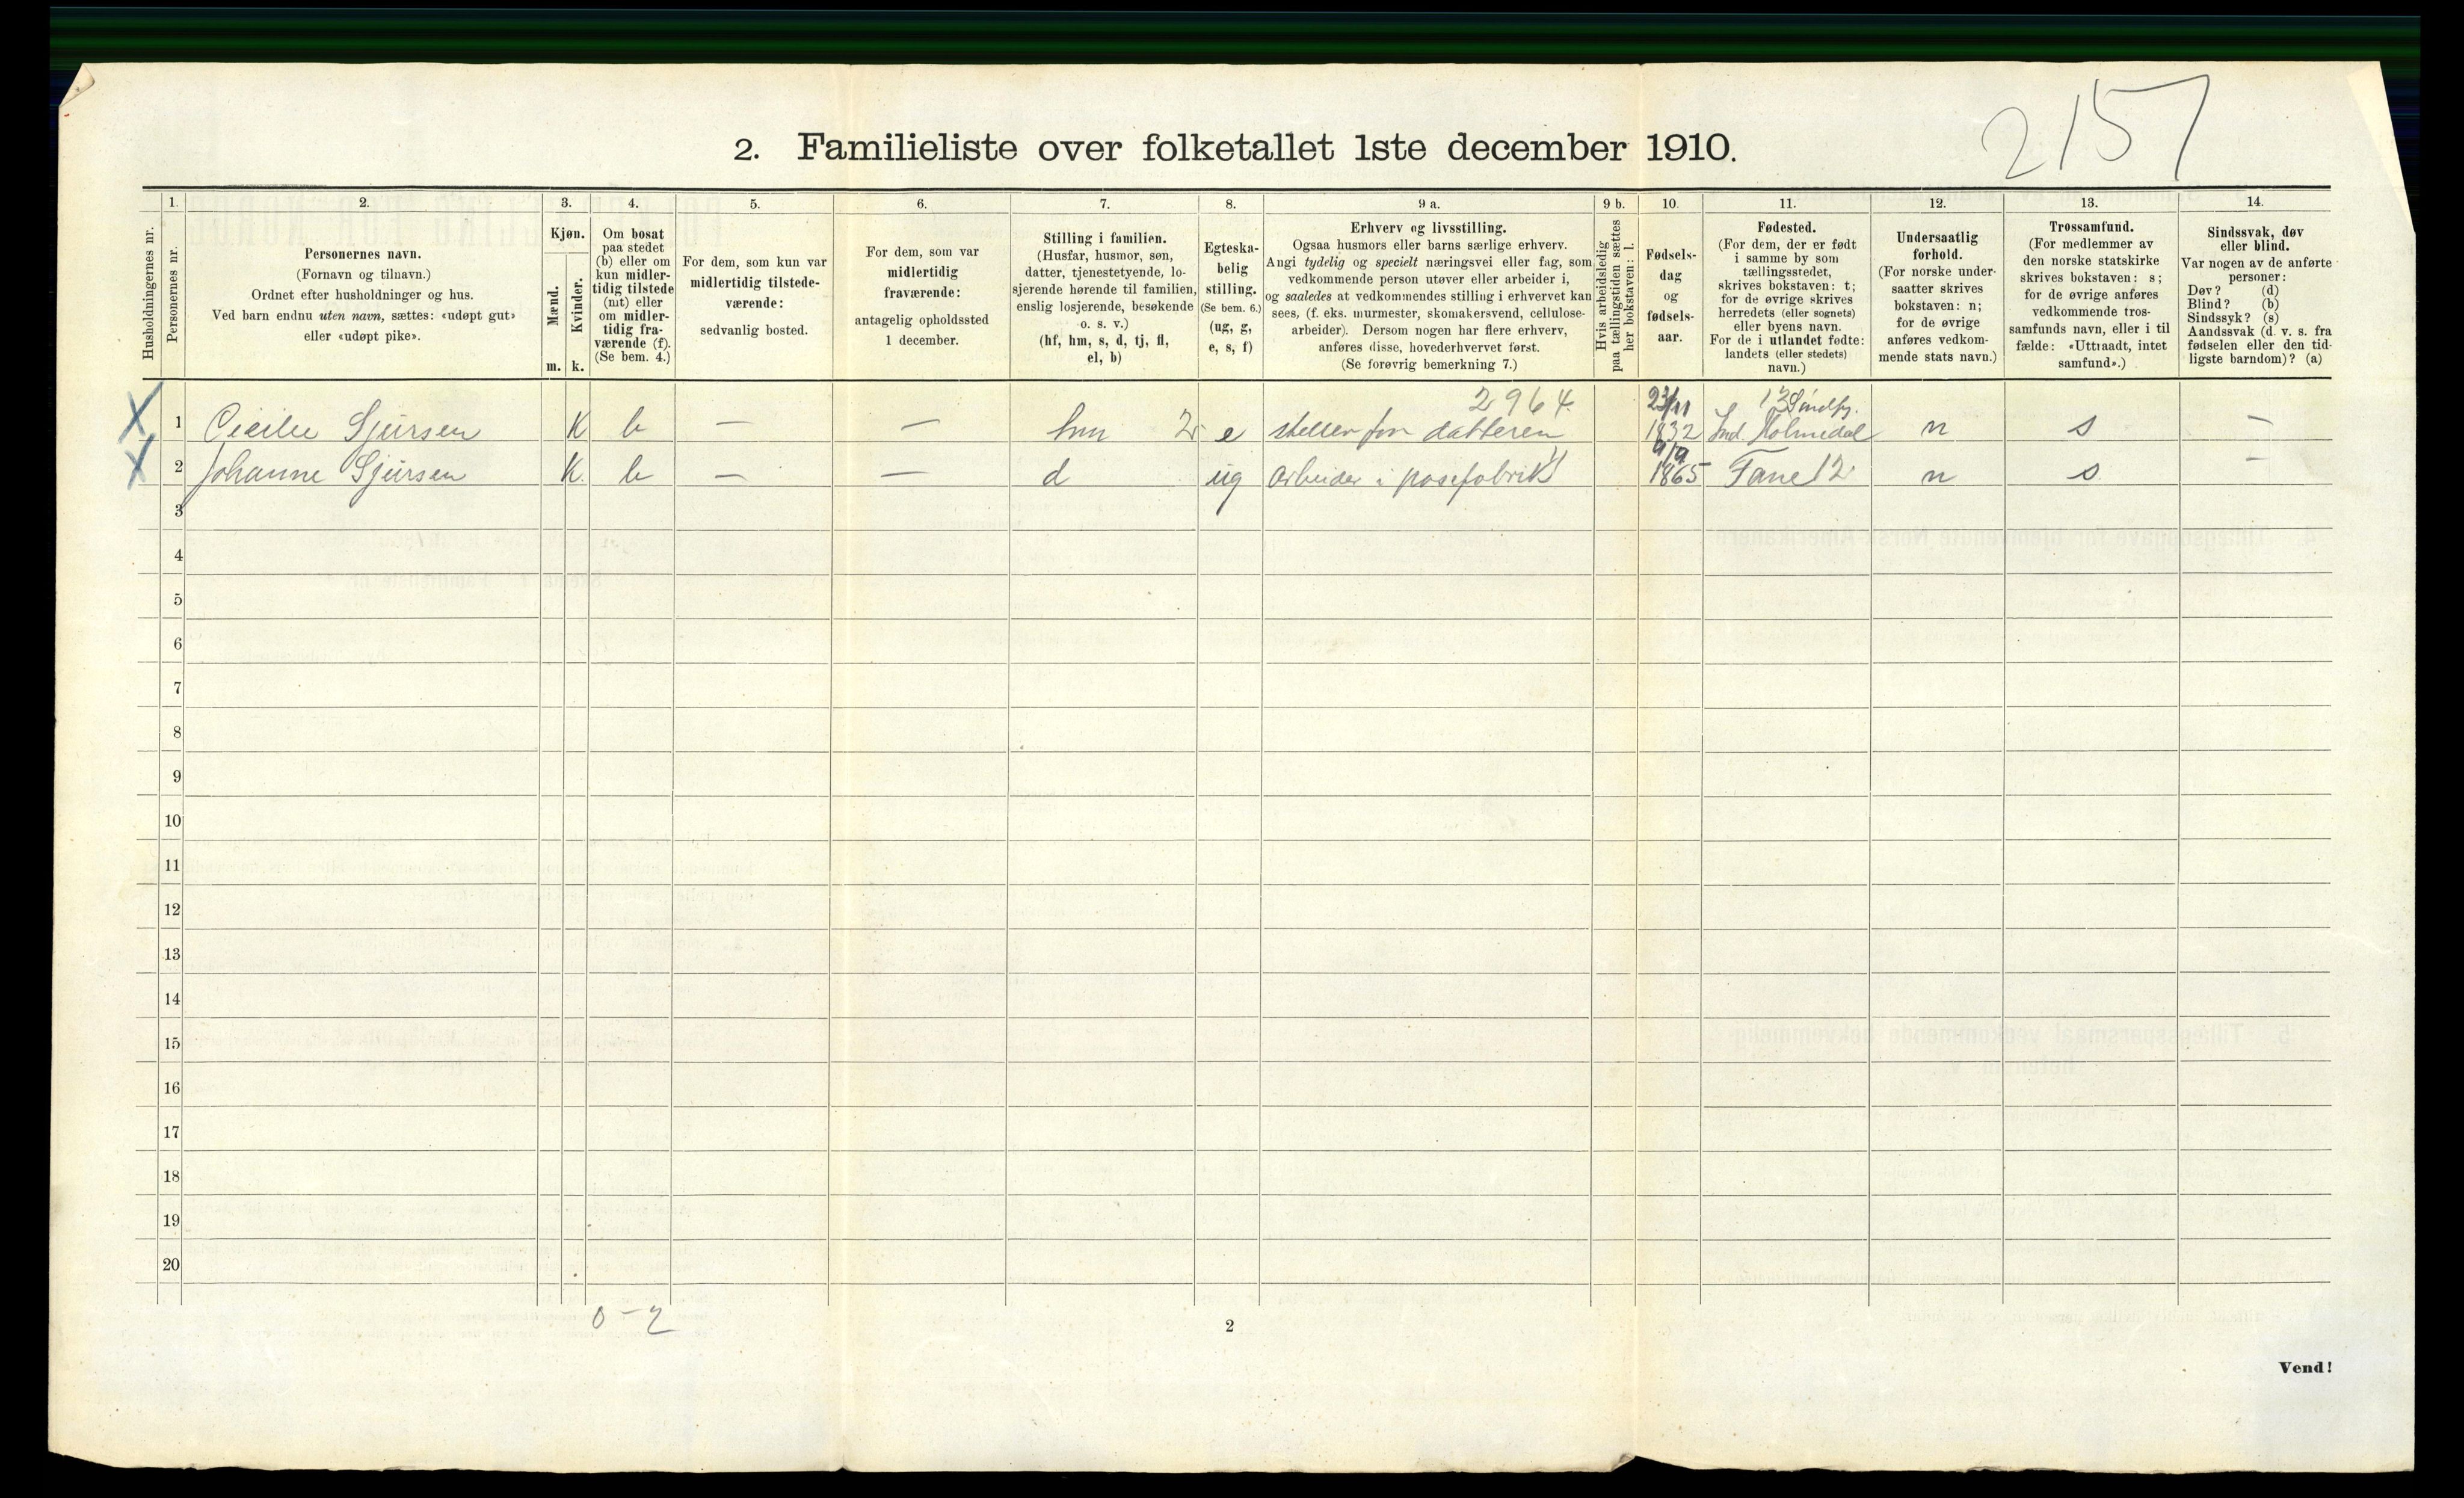 2157
2. Familieliste over folketallet 1ste december 1910.
Husholdningernes nr.
1.
Personernes nr.
2.
Personernes navn.
(Fornavn og tilnavn.)
Ordnet efter husholdninger og hus.
Ved barn endnu uten navn, sættes: «udøpt gut»
eller «udøpt pike».
3.
Kjøn.
Mænd.
Kvinder.
m. k.
4.
Om bosat
paa stedet
(b) eller om
kun midler-
tidig tilstede
(mt) eller
om midler-
tidig fra-
værende (f).
(Se bem. 4.)
5.
For dem, som kun var
midlertidig tilstede-
værende:
sedvanlig bosted.
6.
For dem, som var
midlertidig
fraværende:
antagelig opholdssted
1 december.
7.
Stilling i familien.
(Husfar, husmor, søn,
datter, tjenestetyende, lo-
sjerende hørende til familien,
enslig losjerende, besøkende
o. s. v.)
(hf, hm, s, d, tj, fl,
el, b)
8.
Egteska-
belig
stilling.
(Se bem. 6.)
(ug, g,
e, s, f)
9 a.
Erhverv og livsstilling.
Ogsaa husmors eller barns særlige erhverv.
Angi tydelig og specielt næringsvei eller fag, som
vedkommende person utøver eller arbeider i,
og saaledes at vedkommendes stilling i erhvervet kan
sees, (f. eks. murmester, skomakersvend, cellulose-
arbeider). Dersom nogen har flere erhverv,
anføres disse, hovederhvervet først.
(Se forøvrig bemerkning 7.)
9 b.
Hvis arbeidsledig
paa tællingstiden sættes
her bokstaven: l.
10.
Fødsels-
dag
og
fødsels-
aar.
11.
Fødested.
(For dem, der er født
i samme by som
tællingsstedet,
skrives bokstaven: t;
for de øvrige skrives
herredets (eller sognets)
eller byens navn.
For de i utlandet fødte:
landets (eller stedets)
navn.)
12.
Undersaatlig
forhold.
(For norske under-
saatter skrives
bokstaven: n;
for de øvrige
anføres vedkom-
mende stats navn.)
13.
Trossamfund.
(For medlemmer av
den norske statskirke
skrives bokstaven: s;
for de øvrige anføres
vedkommende tros-
samfunds navn, eller i til
fælde: «Uttraadt, intet
samfund».)
14.
Sindssvak, døv
eller blind.
Var nogen av de anførte
personer:
Døv? (d)
Blind? (b)
Sindssyk? (s)
Aandssvak (d. v. s. fra
fødselen eller den tid-
ligste barndom)? (a)
2964 23/11 13 Søndfj.
X 1 Cicilie Sjursen K b — — hm 2 e steller for datteren 1832 Ind. Holmedal n s —
9/9
X 2 Johanne Sjursen K. b — — d ug Arbeider i posefabrik 1865 Fane 12 n s —
3
4
5
6
7
8
9
10
11
12
13
14
15
16
17
18
19
20
0 – 2
2
Vend!